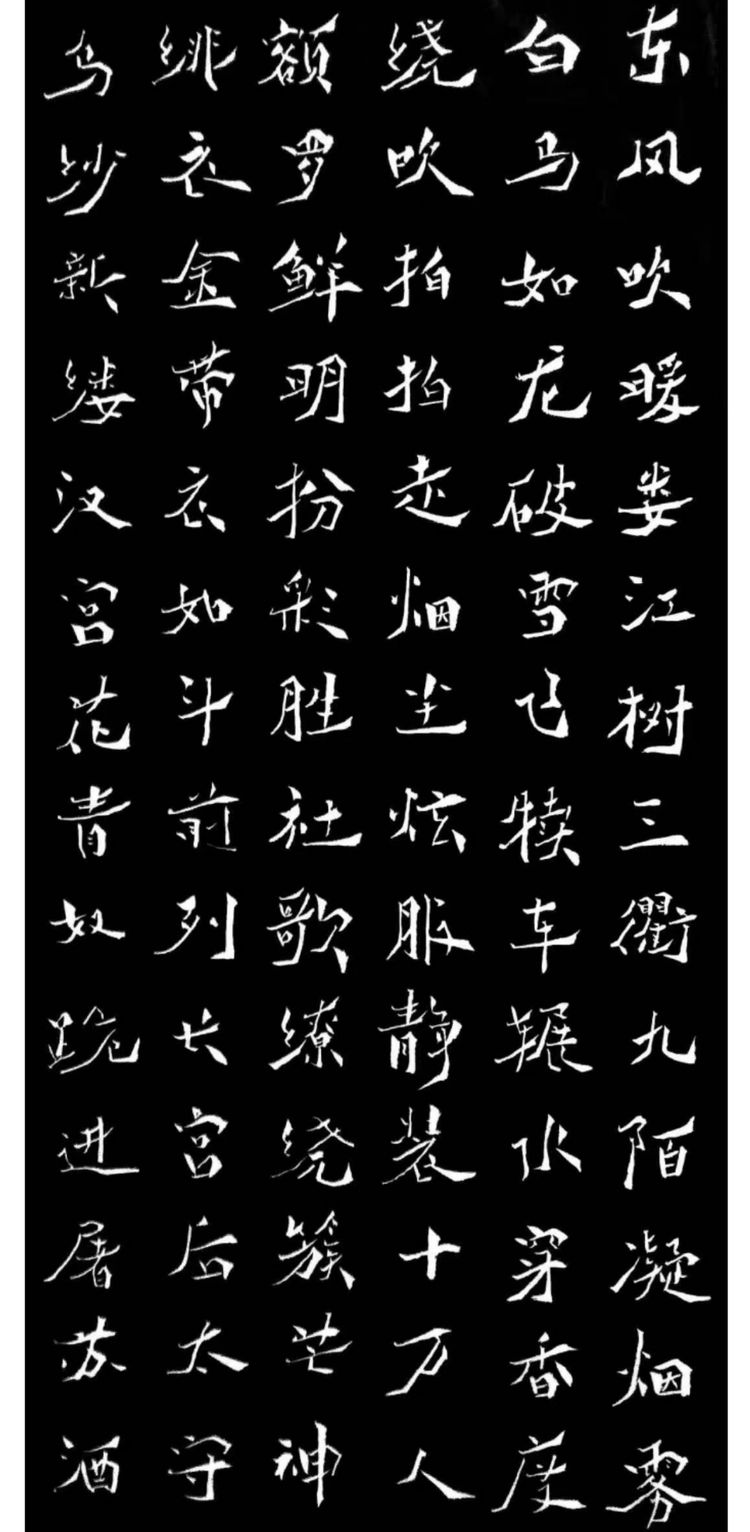 东风吹暖娄江树三衢九陌凝烟雾
白马如龙破雪飞犊车辗水穿香度
绕吹拍拍走烟尘炫服静装十万人
额罗鲜明扮彩胜社歌缭绕簇芒神
绯衣金带衣如斗前列长宫后太守
乌纱新缕汉宫花青奴跪进屠苏酒